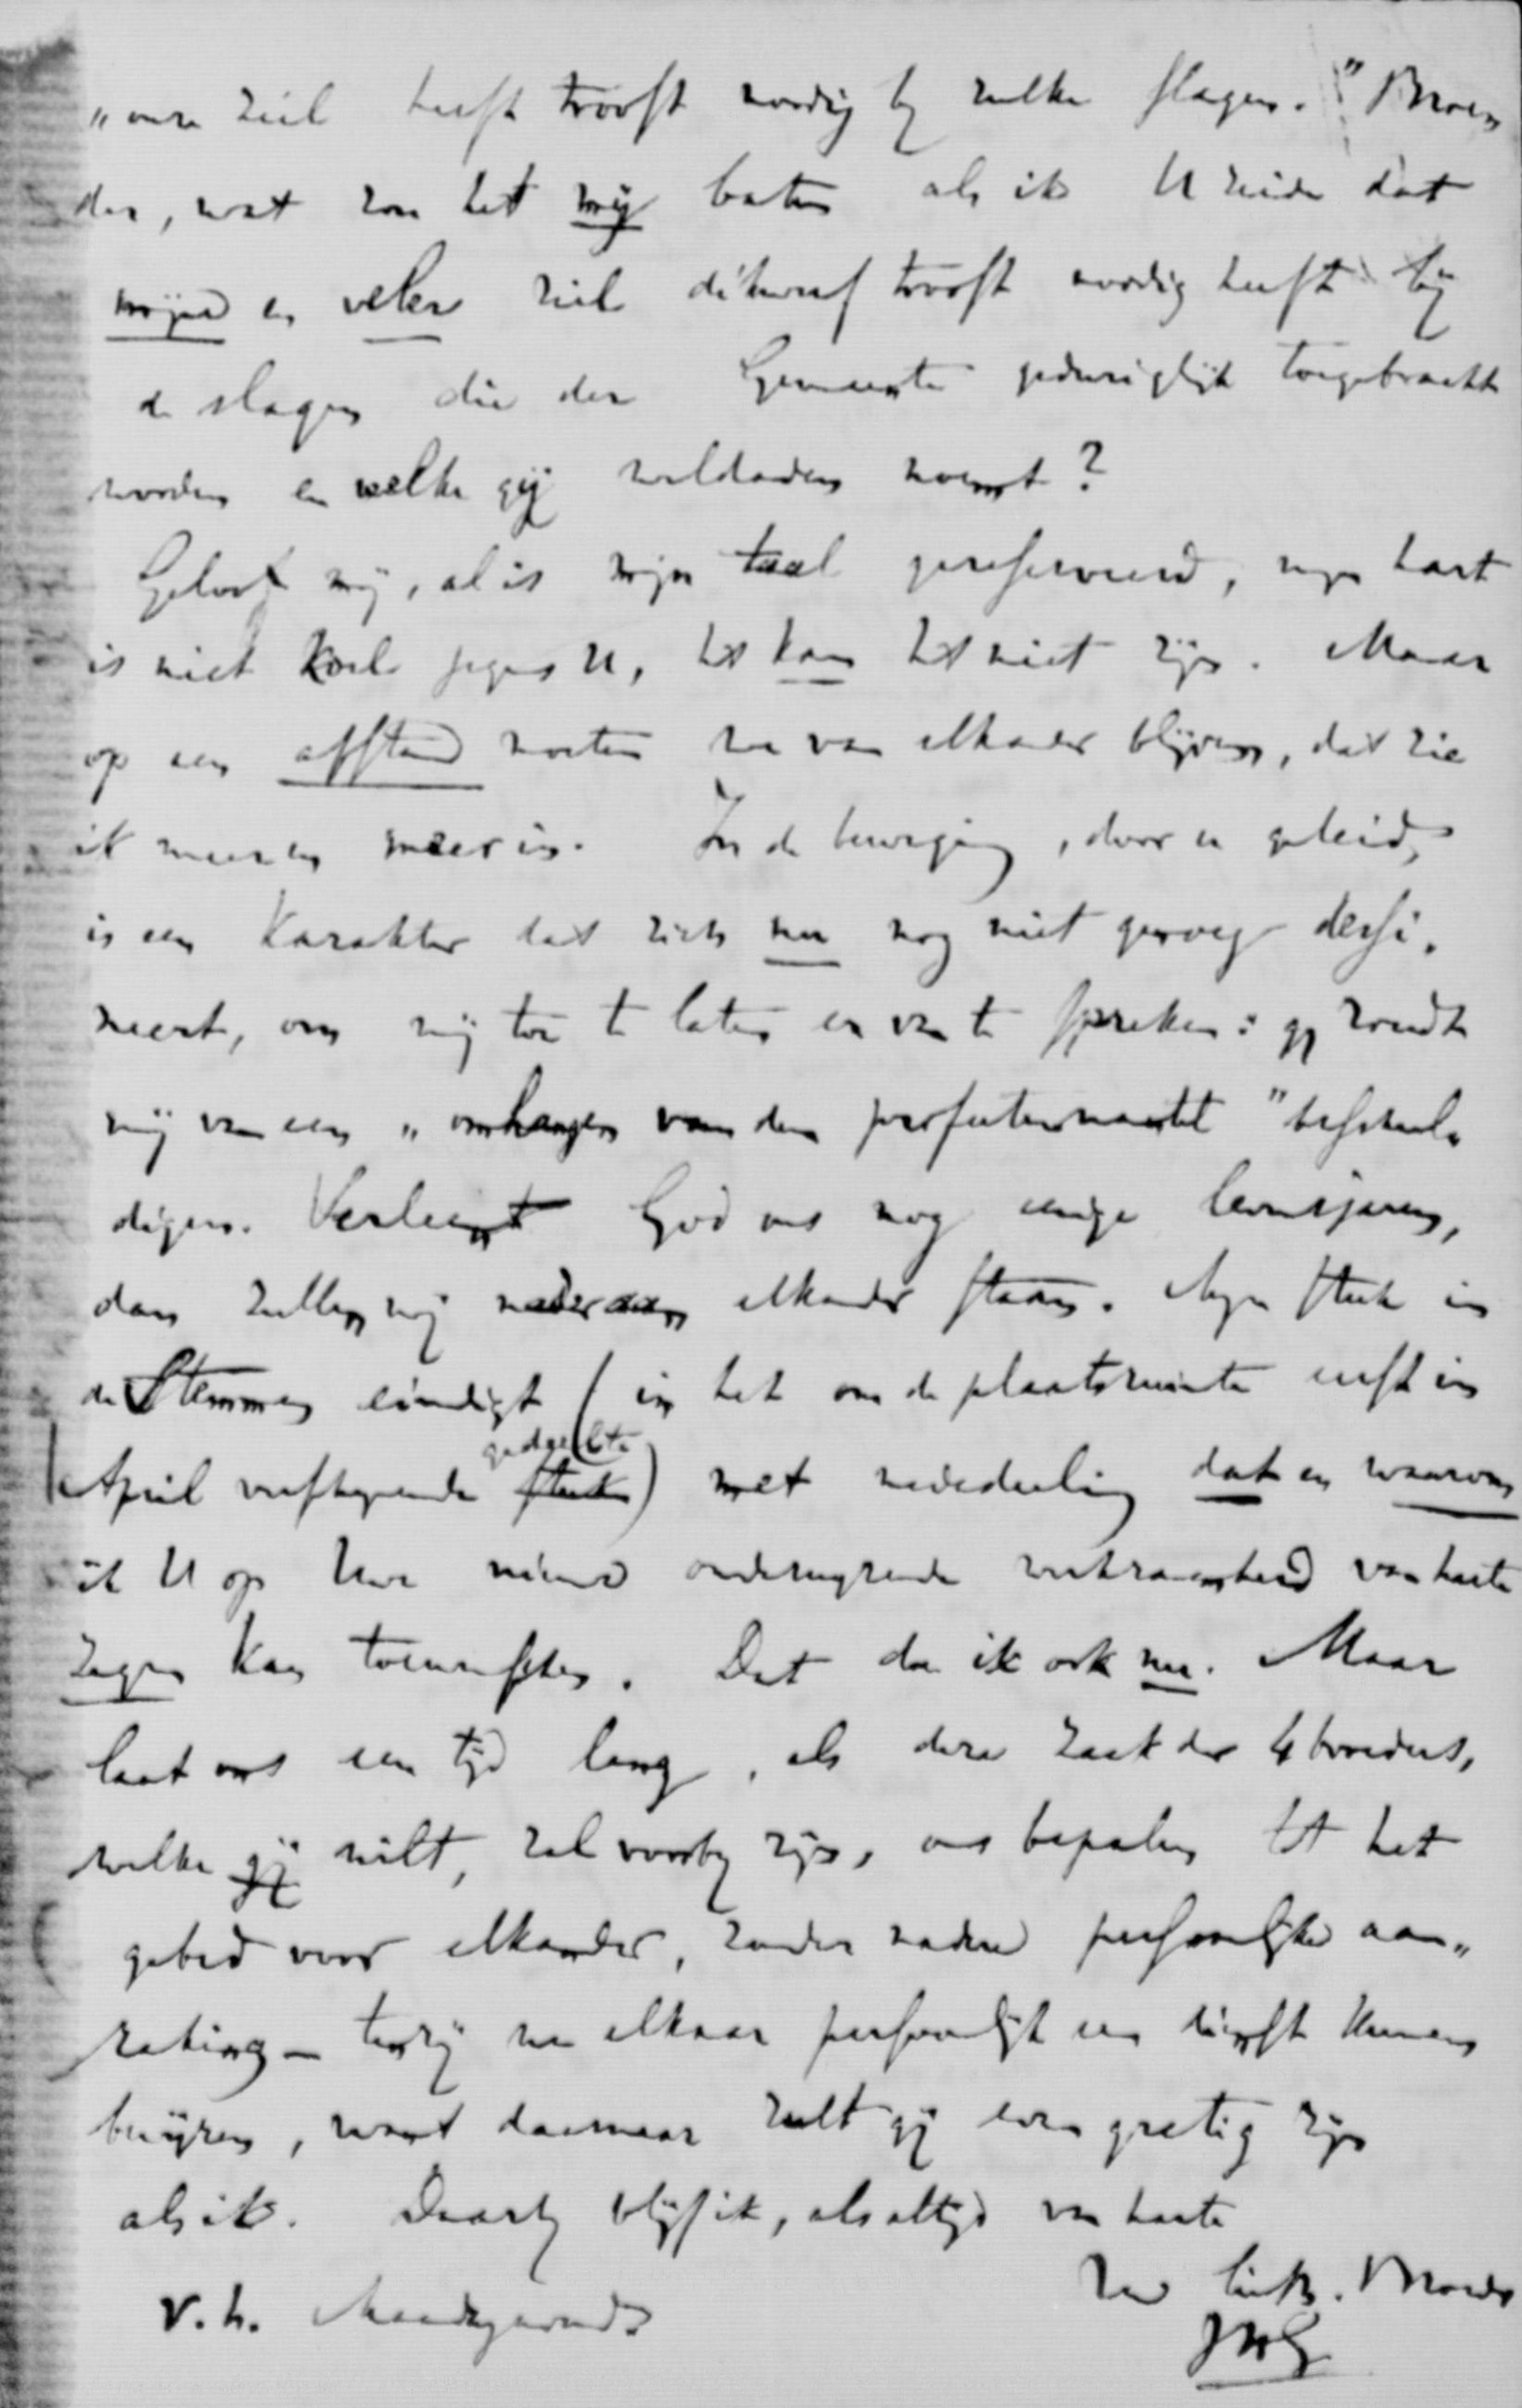 „onze ziel heeft troost noodig by zulke slagen." Broe„
der, wat zou het mij baten als ik U zeide dat
mijne en veler ziel dikwerf troost noodig heeft bij
de slagen die der Gemeente geduriglijk toegebracht
worden en welke gij weldaden noemt?
Geloof mij, al is mijn taal gereserveerd, mijn hart
is niet koel jegens U, het kan het niet zijn. Maar
op een afstand moeten we van elkander blijven, dat zie
ik meer en meer in. In de beweging, door u geleid,
is een karakter dat zich nu nog niet genoeg dessi„
neert, om mij toe te laten er van te spreken: gij zoudt
mij van een „omhangen van den profetenmantel" beschul„
digen. Verleent God ons nog eenige levensjaren,
dan zullen wij nader aan elkander staan. Mijn stuk in
de Stemmen eindigt (in het om de plaatsruimte eerst in
April verschijnende gedeelte) met mededeeling dat en waarom
ik U op Uwe nieuwe werkzaamheid van harte
zegen kan toewenschen. Dat doe ik ook nu. Maar
laat ons een tijd lang, als deze zaak der 4 broeders,
welke gij wilt, zal voorby zijn, ons bepalen tot het
gebed voor elkander, zonder nadere persoonlijke aan„
raking — tenzij we elkaar persoonlijk een dienst kunnen
bewijzen, want daarnaar zult gij even gretig zijn
als ik. Daarby blijf ik, als altijd van harte
Uw liefh. Broeder
v. h. Maandagavond
JHG